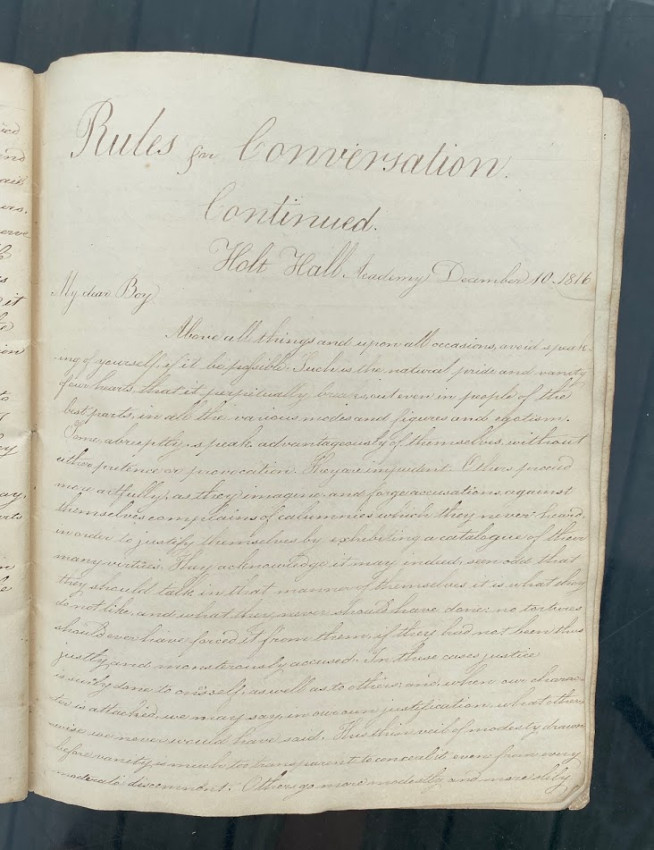 Rules for Conversation.
Continued.
Holt Hall Academy December 10 1816
My dear Boy
Above all things and upon all occasions, avoid speak-
ing of yourself, if it be possible. Such is the natural pride and vanity
of our hearts that it perpetually breaks out even in people of the
best parts, in all the various modes and figures and egotism.
Some abruptly speak advantageously of themselves, without
either pretence or provocation. They are impudent. Others proceed
more artfully, as they imagine, and forge accusations against
themselves complains of calumnies which they never heard
in order to justify themselves by exhibiting a catalogue of their
many virtues. They acknowledge it may indeed seem odd that
they should talk in that manner of themselves it is what they
do not like and what they never should have done; no tortures
should ever have forced it from them, if they had not been thus
justly and monsterously accused. In these cases justice
is surely done to one's self, as well as to others and when our charac-
ter is attached, we may say in our own justification what other
wise we never would have said. This thin veil of modesty drawn
before vanety, is much too transparent to conceal it even from very
moderate discernment. Others go more modestly and more slily
ined
and
aid
ers.
erve
is
it
to
tion
to
ay.